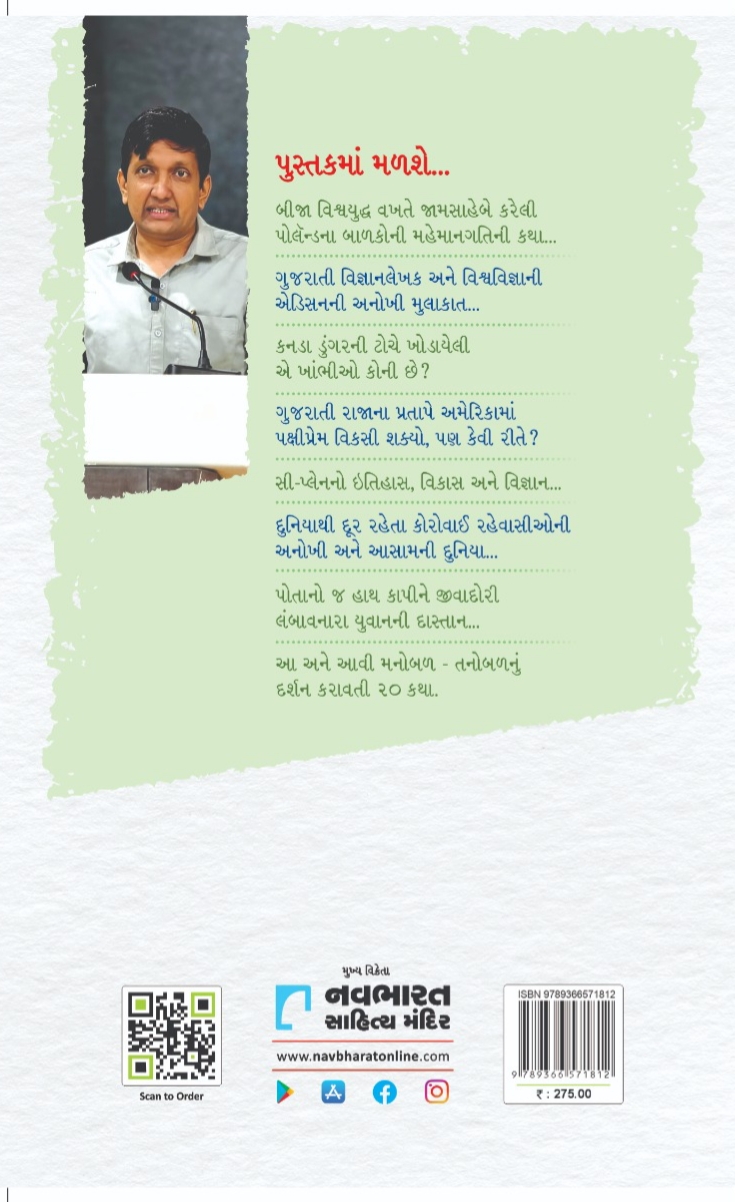 પુસ્તકમાં મળશે...
બીજા વિશ્વયુદ્ધ વખતે જામસાહેબે કરેલી
પોલૅન્ડના બાળકોની મહેમાનગતિની કથા...
ગુજરાતી વિજ્ઞાનલેખક અને વિશ્વવિજ્ઞાની
એડિસનની અનોખી મુલાકાત...
કનડા ડુંગરની ટોચે ખોડાયેલી
એ ખાંભીઓ કોની છે?
ગુજરાતી રાજાના પ્રતાપે અમેરિકામાં
પક્ષીપ્રેમ વિકસી શક્યો, પણ કેવી રીતે?
સી-પ્લેનનો ઇતિહાસ, વિકાસ અને વિજ્ઞાન...
દુનિયાથી દૂર રહેતા કોરોવાઈ રહેવાસીઓની
અનોખી અને આસામની દુનિયા...
પોતાનો જ હાથ કાપીને જીવાદોરી
લંબાવનારા યુવાનની દાસ્તાન...
આ અને આવી મનોબળ - તનોબળનું
દર્શન કરાવતી ૨૦ કથા.
મુખ્ય વિક્રેતા
નવભારત
સાહિત્ય મંદિર
www.navbharatonline.com
Scan to Order
ISBN 9789366571812
9 789366 571812
₹ : 275.00